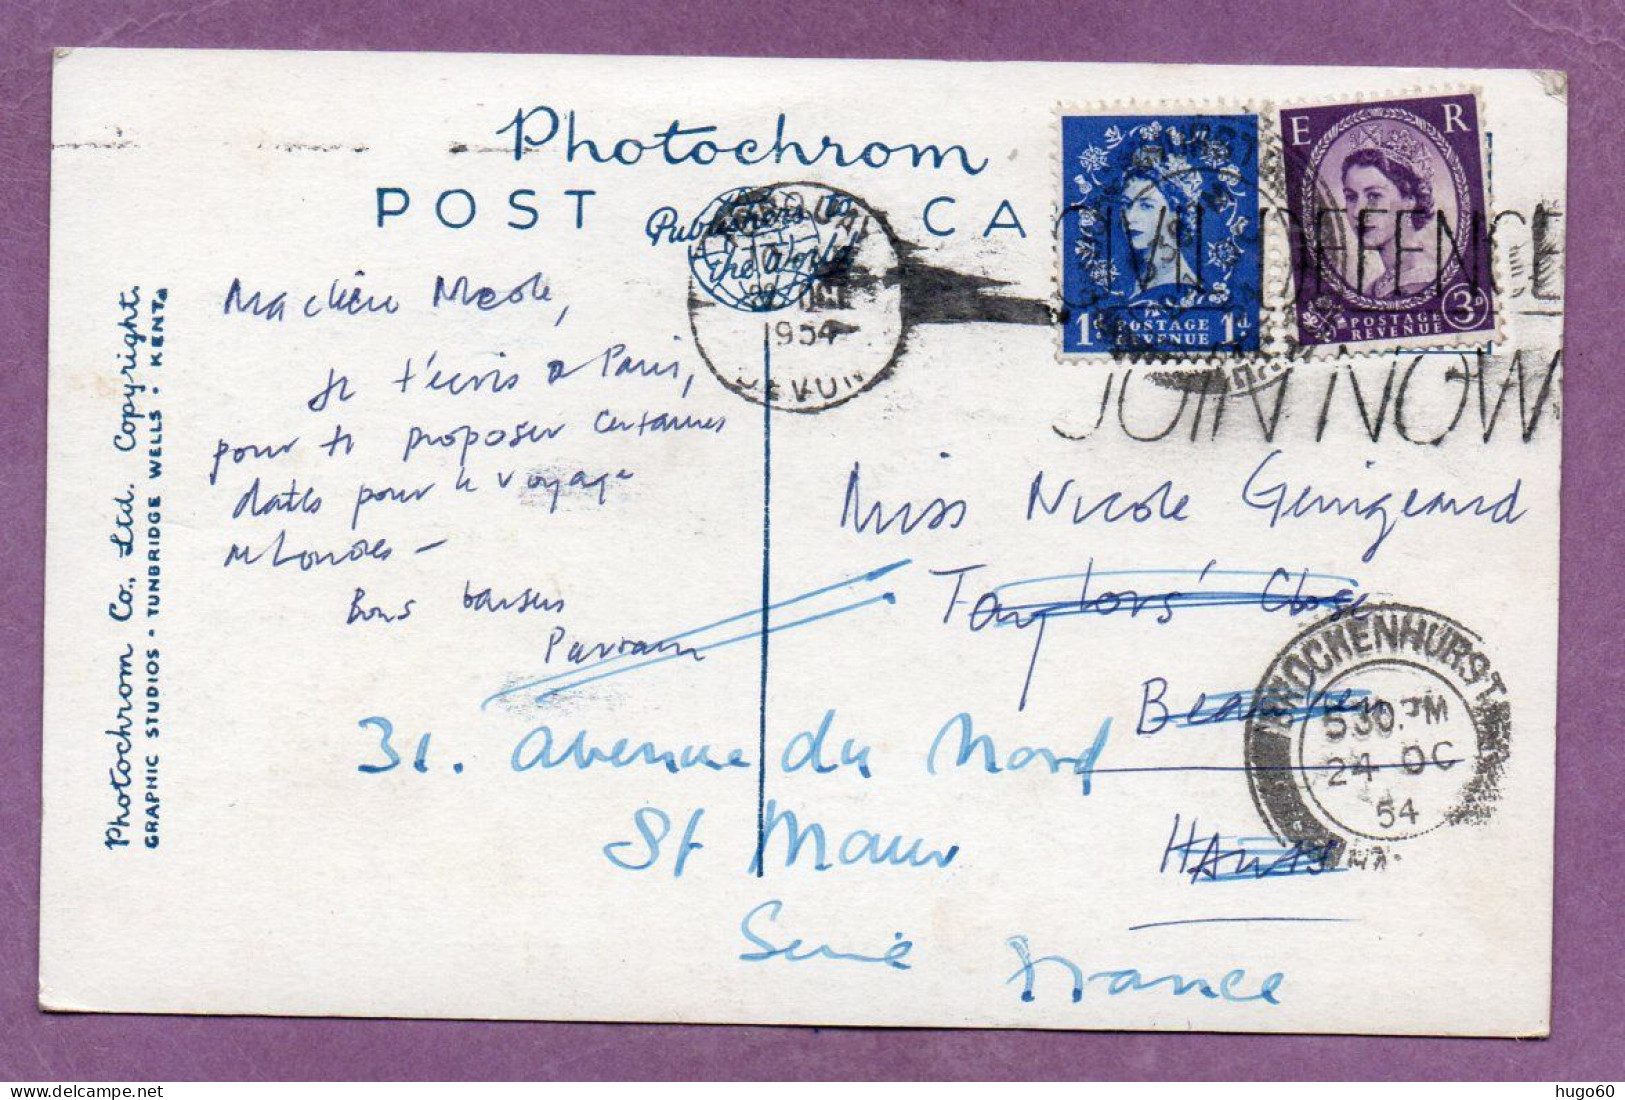 Photochrom
POST CA
Publishers to
the World
TORQUAY
OCT
1954
DEVON
CIVIL DEFENCE
JOIN NOW
1D POSTAGE REVENUE 1D
E R
POSTAGE REVENUE 3D
Ma chère Nicole,
Je t'écris à Paris,
pour te proposer certaines
dates pour le voyage
à Londres –
Bons baisers
Parrain
Miss Nicole
Taylors' Close
Beaulieu
HANTS
31. Avenue du Nord
St Maur
Seine
France
BROCKENHURST
5 30. PM
24 OC
54
Photochrom Co., Ltd. Copyright.
GRAPHIC STUDIOS · TUNBRIDGE WELLS · KENT.
hugo60